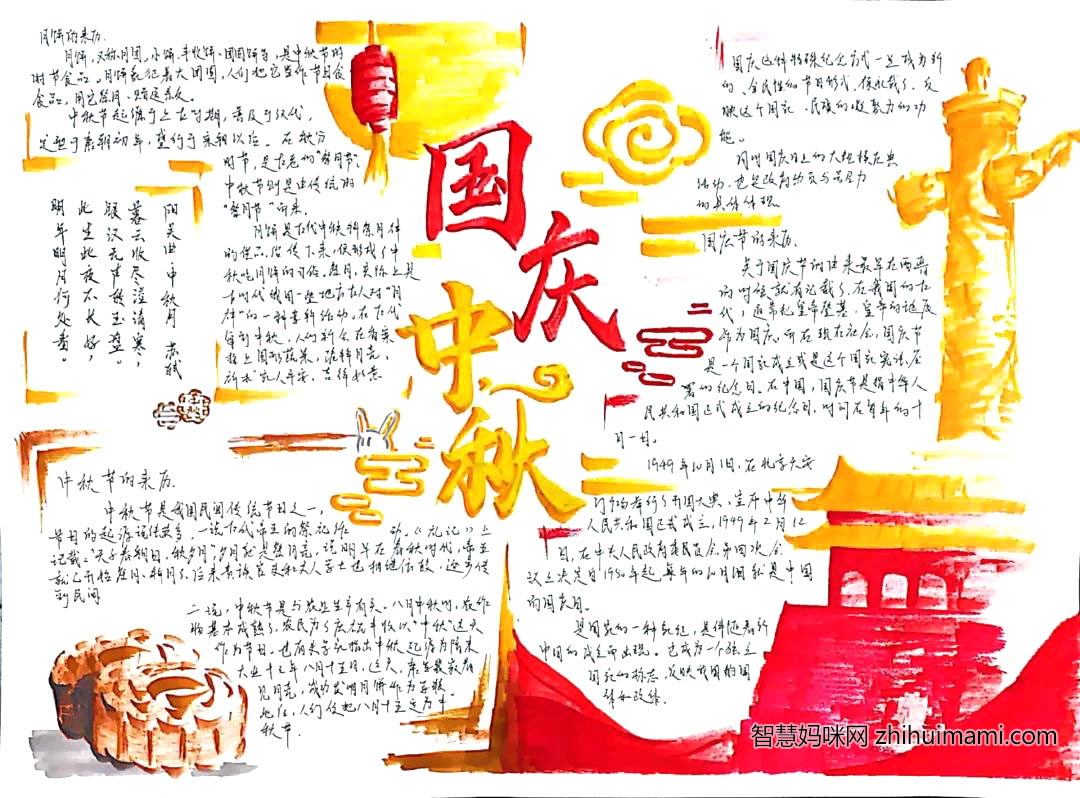 月饼的来历.
月饼,又称月团、小饼、丰收饼、团圆饼等,是中秋节的
时节食品。月饼象征着大团圆,人们把它当作节日食
食品,用它祭月、赠送亲友。
中秋节起源于上古时期,普及于汉代,
定型于唐朝初年,盛行于宋朝以后。在秋分
时节,是古老的“祭月节”,
中秋节则是由传统的
“祭月节”而来.
月饼是古代中秋祭拜月神
的供品,沿传下来,便形成了中
秋吃月饼的习俗。祭月,实际上是
古时代我国一些地方古人对“月
神”的一种崇拜活动。在古代
每到中秋,人们都会在看桌
祈求家人平安、吉祥如意
阳关曲·中秋月 苏轼
暮云收尽溢清寒,
银汉无声转玉盘。
此生此夜不长好,
明年明月何处看。
国庆
中秋
中秋节的来历.
中秋节是我国民间传统节日之一,
节日的起源说法较多,一说古代帝王的祭祀作 动,《礼记》上
记载:“天子春朝日,秋夕月”,夕月就是祭月亮,说明早在春秋时代,帝王
就已开始祭月、拜月了.后来贵族官吏和文人学士也相继仿效,逐步传
到民间
二说,中秋节是与农业生产有关。八月中秋时,农作
物基本成熟了,农民为了庆祝丰收以“中秋”这天
作为节日。也有关于说指出中秋起源为隋末
大业十三年八月十五日,这天,唐军裴寂看
见月亮,成功发明月饼作为军粮。
此后,人们便把八月十五定为中
秋节.
国庆这种特殊纪念方式一旦成为新
的、全民性的节日形式,便承载了、反
映这个国家、民族的凝聚力的功
能。
同时国庆日上的大规模庆典
活动,也是政府动员与号召力
的具体体现
国庆节的来历.
关于国庆节的由来最早在西晋
的时候就有记载了.在我国的古
代,通常把皇帝登基、皇帝的诞辰
作为国庆.而在现在社会,国庆节
是一个国家成立或是这个国家宪法签
署的纪念日。在中国,国庆节是指中华人
民共和国正式成立的纪念日,时间在每年的十
月一日。
1949年10月1日,在北京天安
门广场举行了开国大典,宣布中华
人民共和国正式成立,1949年2月12
日,在中央人民政府委员会第四次会
议上决定自1950年起,每年的10月1日就是中国
的国庆日。
是国家的一种象征,是伴随着新
中国的成立而出现。也成为一个独立
国家的标志,反映我国的国
体和政体.
智慧妈咪网 zhihuimami.com